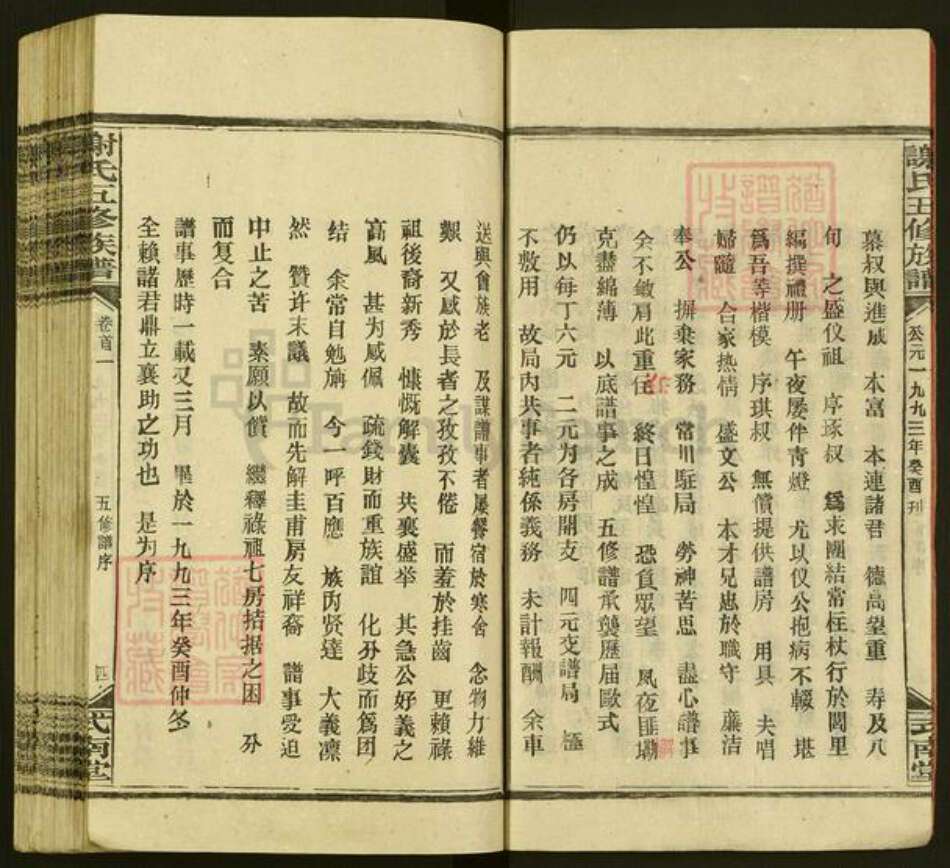 謝氏五修族譜
公元一九九三年癸酉刊
式南堂
慕叔與進成 本富 本連諸君 德高望重 寿及八
旬 之盛仪祖 序琢叔 爲求團結常枉杖行於閭里
編撰禮册 午夜屡伴青燈 尤以仪公抱病不輟 堪
爲吾等楷模 序琪叔 無償提供譜房 用具 夫唱
婦隨 合家热情 盛文公 本才兄忠於職守 廉洁
奉公 摒棄家務 常川駐局 勞神苦思 盡心譜事
余不敏肩此重任 終日惶惶 恐負眾望 夙夜匪塌
克盡綿薄 以底譜事之成 五修譜承襲歷届歐式
仍以每丁六元 二元为各房開支 四元交譜局 極
不敷用 故局内共事者純係義務 未計報酬 余車
送與會族老 及謀譜事者屡餐宿於寒舍 念物力維
艱 又感於長者之孜孜不倦 而羞於挂齒 更賴祿
祖後裔新秀 慷慨解囊 共襄盛举 其急公好義之
高風 甚为感佩 疏錢財而重族誼 化歧而爲团
结 余常自勉旃 今一呼百應 族内贤達 大義凜
然 赞许末議 故而先解圭甫房友祥裔 譜事受迫
中止之苦 素願以償 繼釋祿禵七房拮据之困 分
而复合
譜事歷時一載又三月 畢於一九九三年癸酉仲冬
全賴諸君鼎立襄助之功也 是为序
謝氏五修族譜
卷首一
五修譜序
四
式南堂